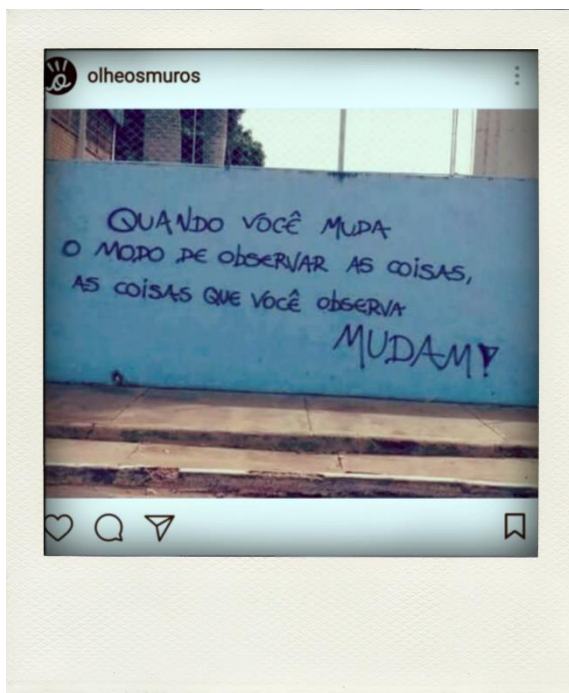 olheosmuros
QUANDO VOCÊ MUDA
O MODO DE ObSERVAR AS COiSAS,
AS COiSAS QUE VOCÊ ObSERVA
MUDAM!